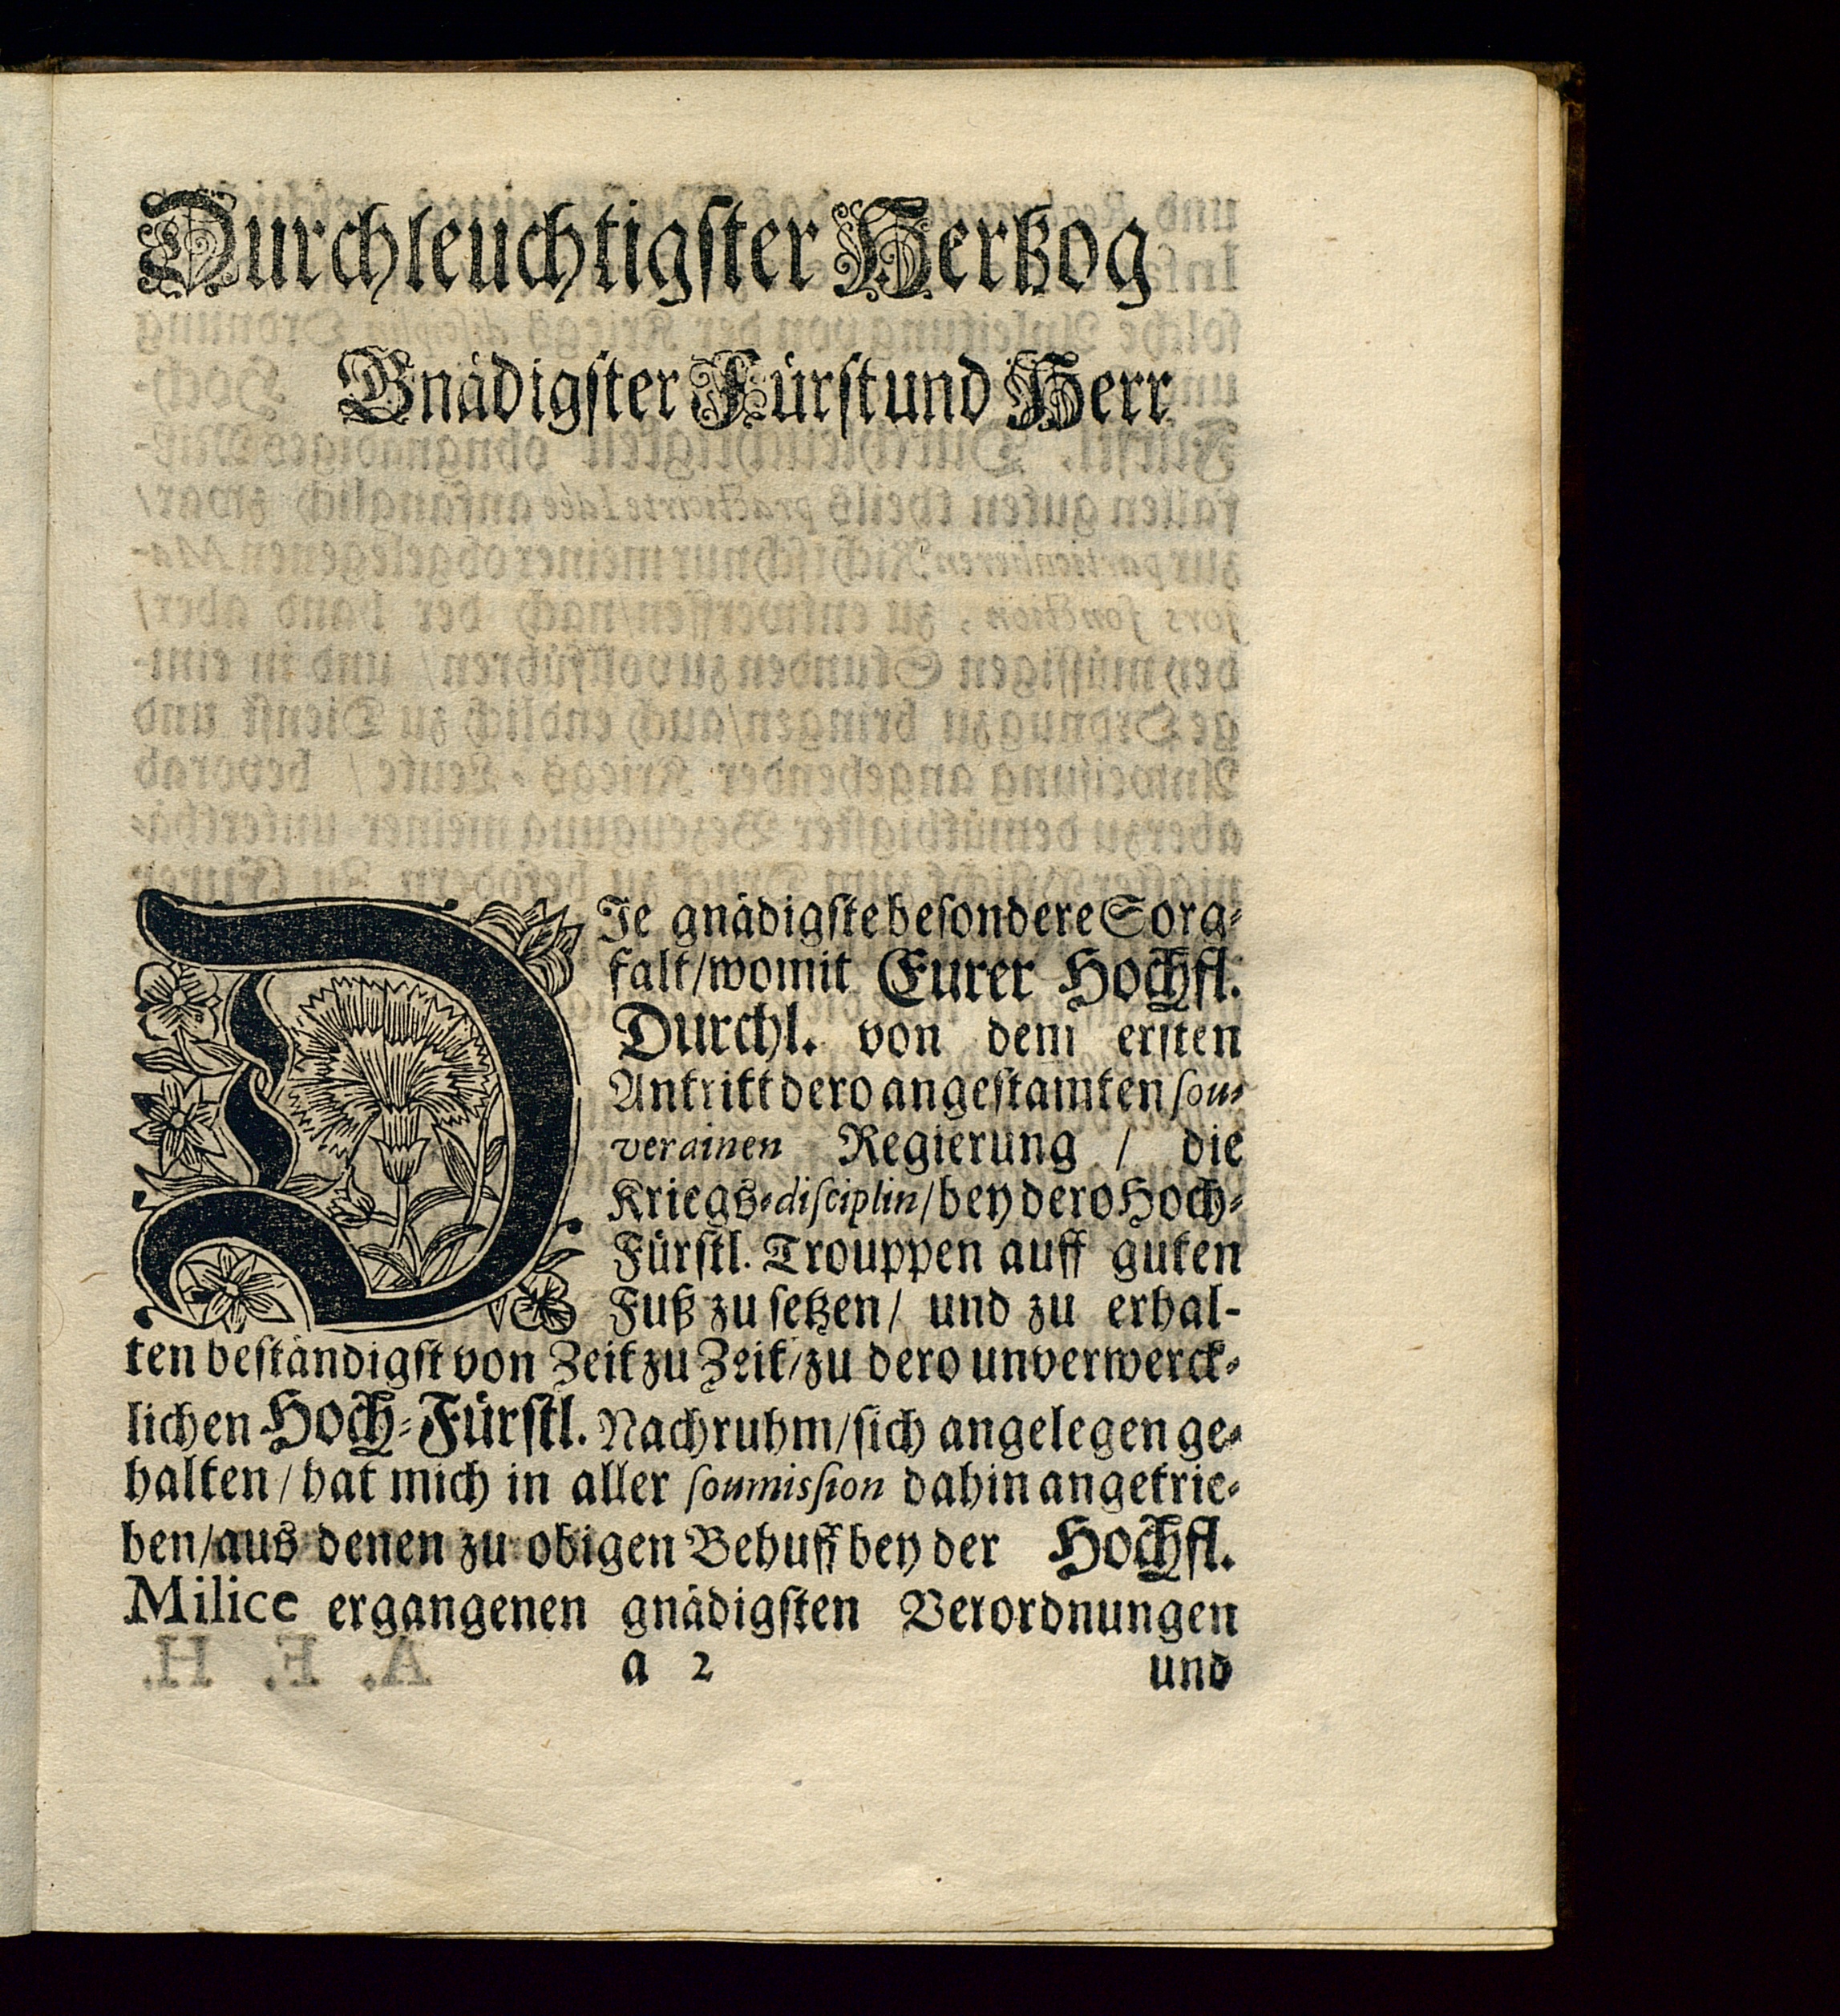 Durchleuchtigster Hertzog
Gnädigster Fürst und Herr
DIe gnädigste besondere Sorg-
falt/womit Eurer Hochfl.
Durchl. von dem ersten
Antritt dero angestamten sou-
verainen Regierung / die
Kriegs-disciplin/bey dero Hoch-
Fürstl. Trouppen auff guten
Fuß zu setzen/ und zu erhal-
ten beständigst von Zeit zu Zeit/zu dero unverwerck-
lichen Hoch-Fürstl. Nachruhm/sich angelegen ge-
halten/hat mich in aller soumission dahin angetrie-
ben/aus denen zu obigen Behuff bey der Hochfl.
Milice ergangenen gnädigsten Verordnungen
a 2 und